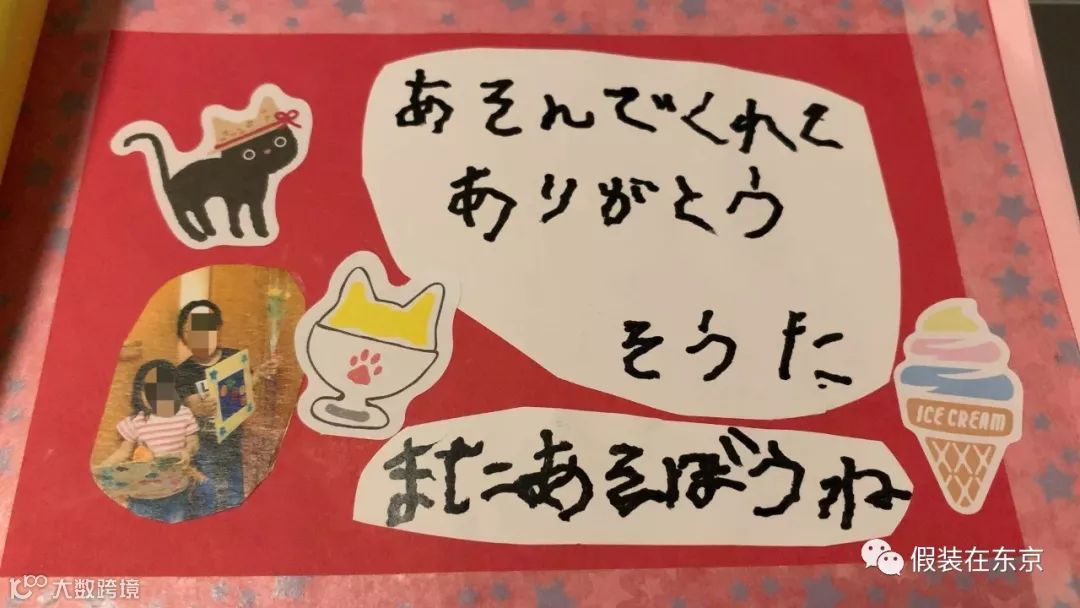 あそんでくれて
ありがとう
そうた
またあそぼうね
ICE CREAM
假装在东京
大数跨境